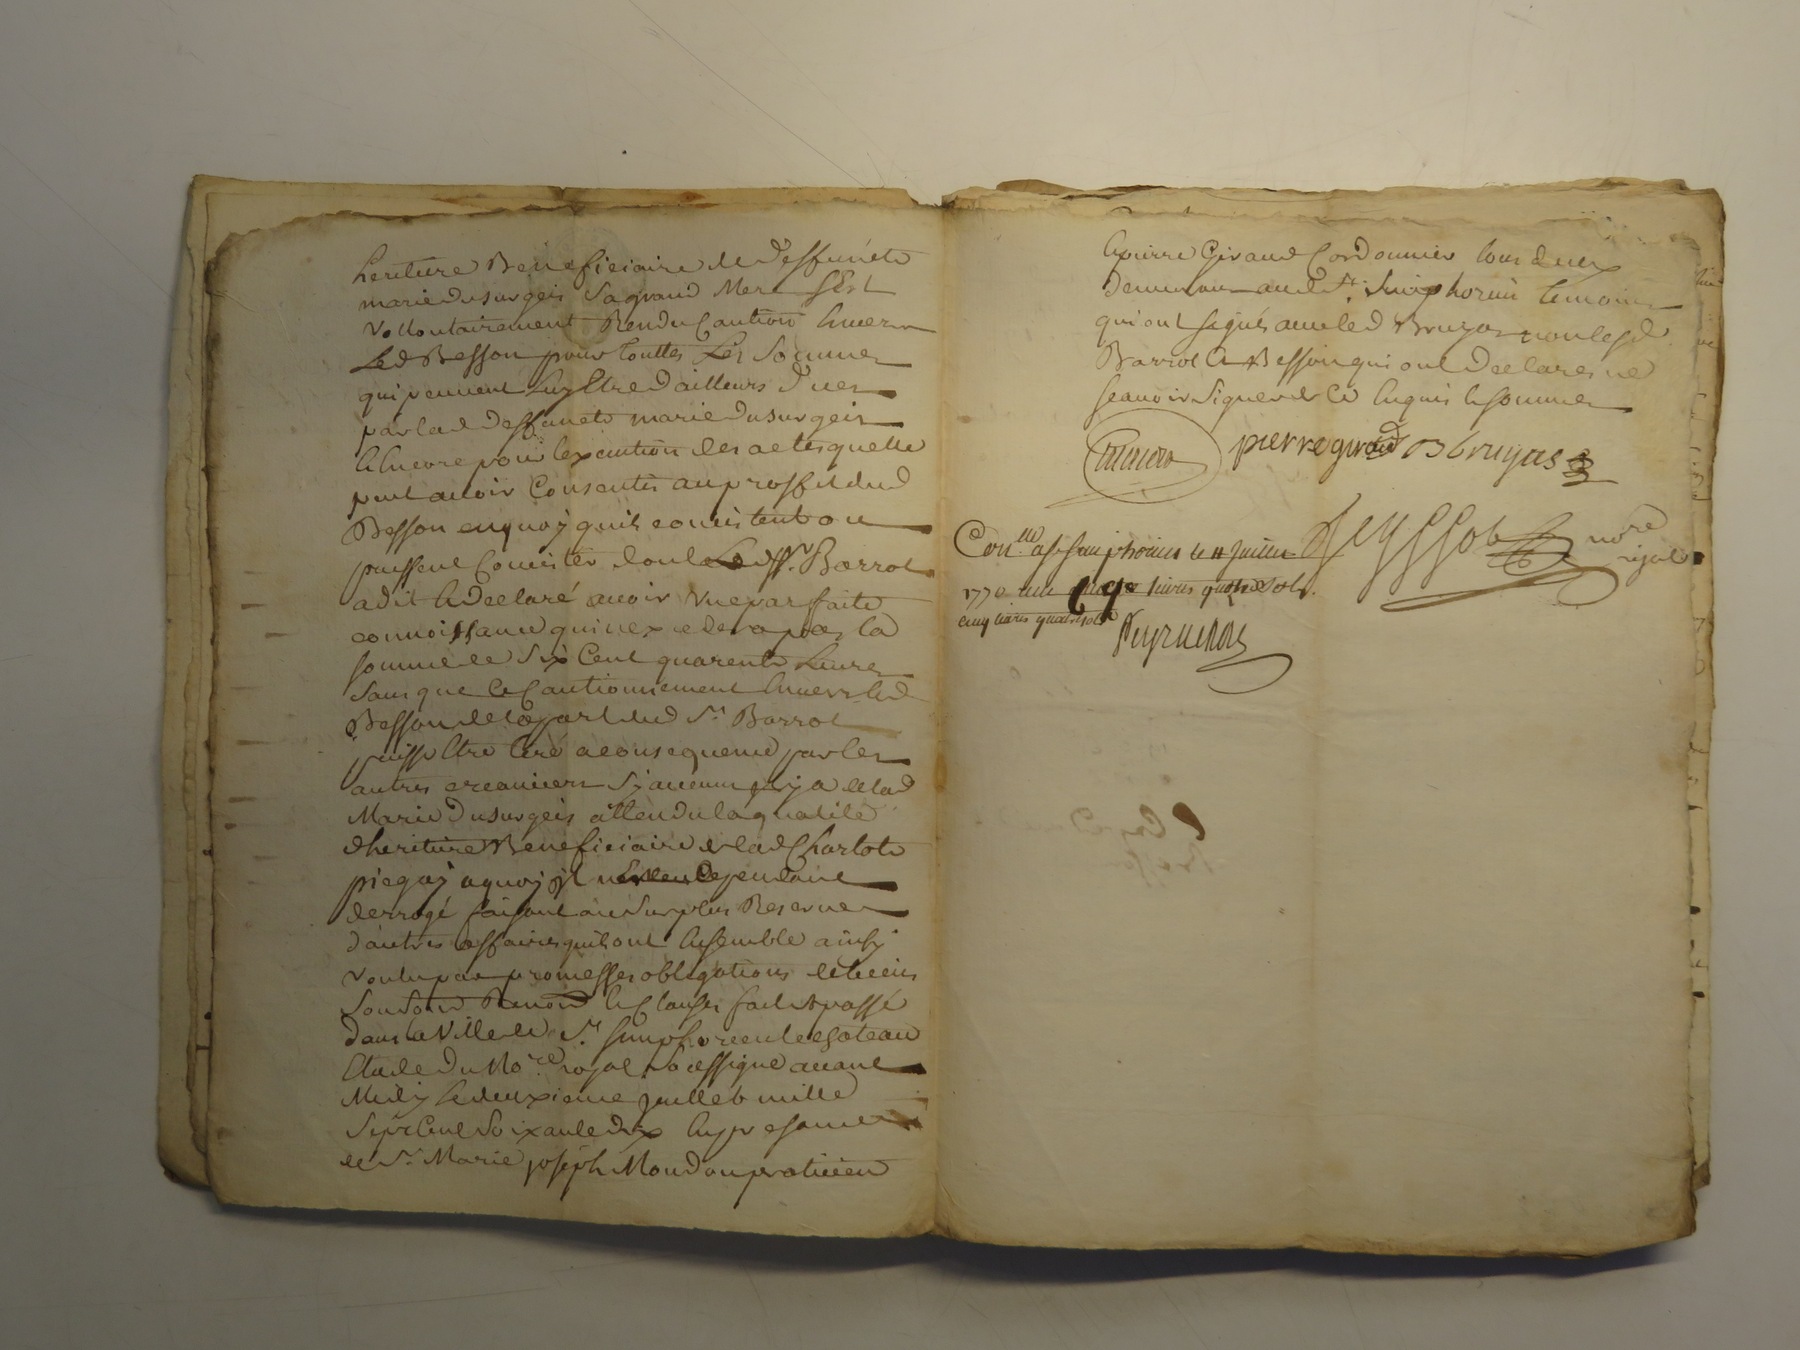 heritiere Beneficiaire de deffunéte
marie dusurgeis Sa grand Mere Sest
Vollontairement Rendu Caution Envers
Led Besson pour touttes Les Sommes
qui peuvent Luy Etre d'ailleurs dues
par lad deffuncte marie dusurgeis
Et Encore pour lexecution des actes quelle
peut avoir Consentis au proffit dud
Besson en quoy quils consistent ou
puissent Consister dont Led Sr. Barrot
a dit et declaré avoir Une parfaite
connoissance qui nexcedera pas la
somme de Six Cent quarente Livres
Sans que le Cautionnement Envers led
Besson de la part dud Sr Barrot
puisse Etre tiré a consequence par les
autres creanciers Sy aucun il y a de lad
Marie dusurgeis attendu la qualité
dheritiere Beneficiaire de lad Charlote
piegay a quoy il nentend cependant
derrogé faisant au Surplus Reserve
dautres affaires quils ont Ensemble ainsy
Voulu par promesses obligations de biens
Renond et Clauses fait et passé
dans la Ville de St. Simphorien le chateau
Etude du Nore royal Soussigné avant
Midy le deuxieme Juillet mille
Sept Cent Soixante dix En presence
de Sr. Marie joseph Mondon praticien
Et pierre Giraud Cordonnier tous deux
demeurant aud St. Simphorien temoins
qui ont signés avec led Bruyas non lesd
Barrot Et Besson qui ont declarés ne
Scavoir Signer de Ce Enquis Et sommes
pierre giraud B bruyas
Conllé a St simphorien le 11 Juillet nore
1770 livres quatre sols. rojal
cinq livres quatre sols